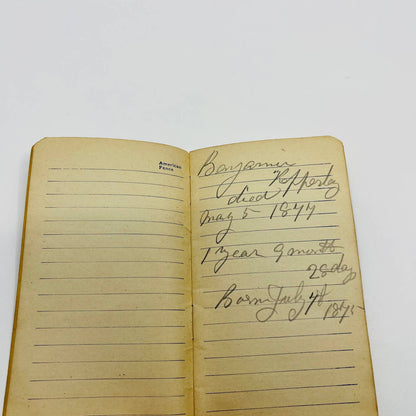 American
Fence
Benjamin
died
May 5 1877
1 year 9 month
28 day
Born July 7th
1875